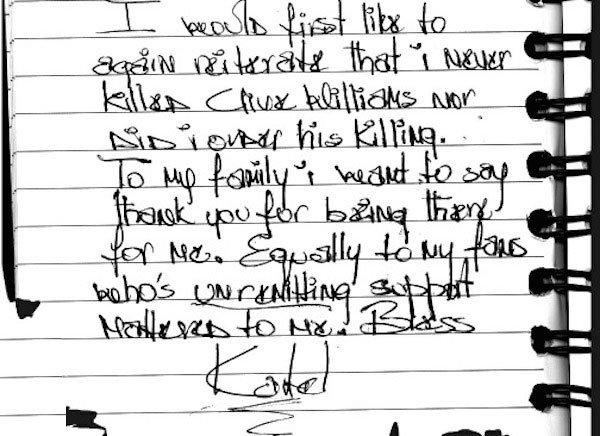 I would first like to
again reiterate that i never
killed Clive Williams nor
did i order his killing.
To my family i want to say
thank you for being there
for me. Equally to my fans
who's unremitting support
mattered to me. Bless
Kartel